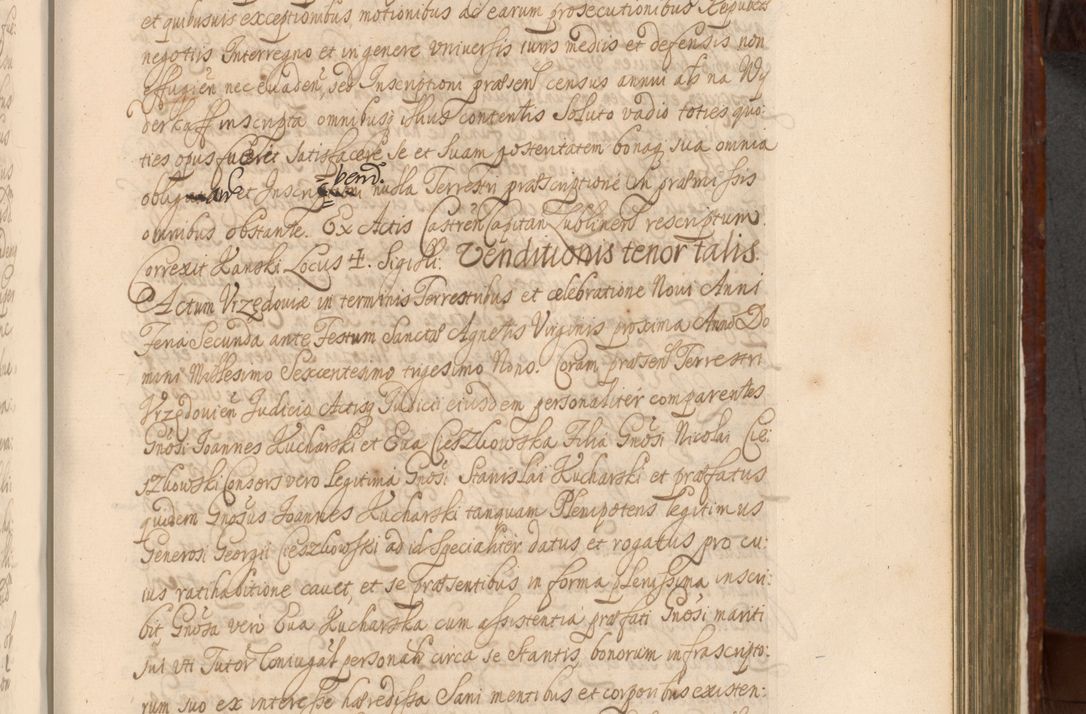 et quibusvis exceptionibus motionibus ac earum prosecutionibus Reipubcts
negotiis Interregno et in genere vniversis iuris mediis et defensis non
effugien nec evaden sed Inscriptioni præsen census annui ab na Wy
derkaff inscripta omnibusq illius contentis Soluto vadio toties quo:
ties opus fuerit satisfacere se et suam posteritatem bonaq sua omnia
obligare et Inscribend. nulla Terrestri præscriptione in præmissis
omnibus obstante. Ex Actis Castren Capitan Lublinen rescriptum
Correxit Kanski Locus Sigilli. Venditionis tenor talis.
Actum Vrzędoviæ in terminis Terrestribus et celebratione Novi Anni
Feria Secunda ante Festum Sanctæ Agnetis Virginis proxima Anno Do
mini Millesimo Sexcentesimo trigesimo Nono. Coram præsen Terrestri
Vrzędovien Iudicio Actisq Iudici eiusdem personaliter comparentes
Gnosi Ioannes Kucharski et Eua Cieszkowska Filia Gnosi Nicolai Cie:
szkowski Consors vero legitima Gnosi Stanislai Kucharski et præfatus
quidem Gnosus Ioannes Kucharski tanquam Plenipotens legitimus
Generosi Georgii Cieszkowski ad id specialiter datus et rogatus pro cu:
ius ratihabitione cavet, et se præsentibus in forma plenissima inscri:
bit Gnosa vero Eua Kucharska cum assistentia præfati Gnosi mariti
sui vti Tutor Coniugal personalr circa se stantis bonorum infrascripto:
rum suo ex interesse hæredissa Sani mentibus et corporibus existen: